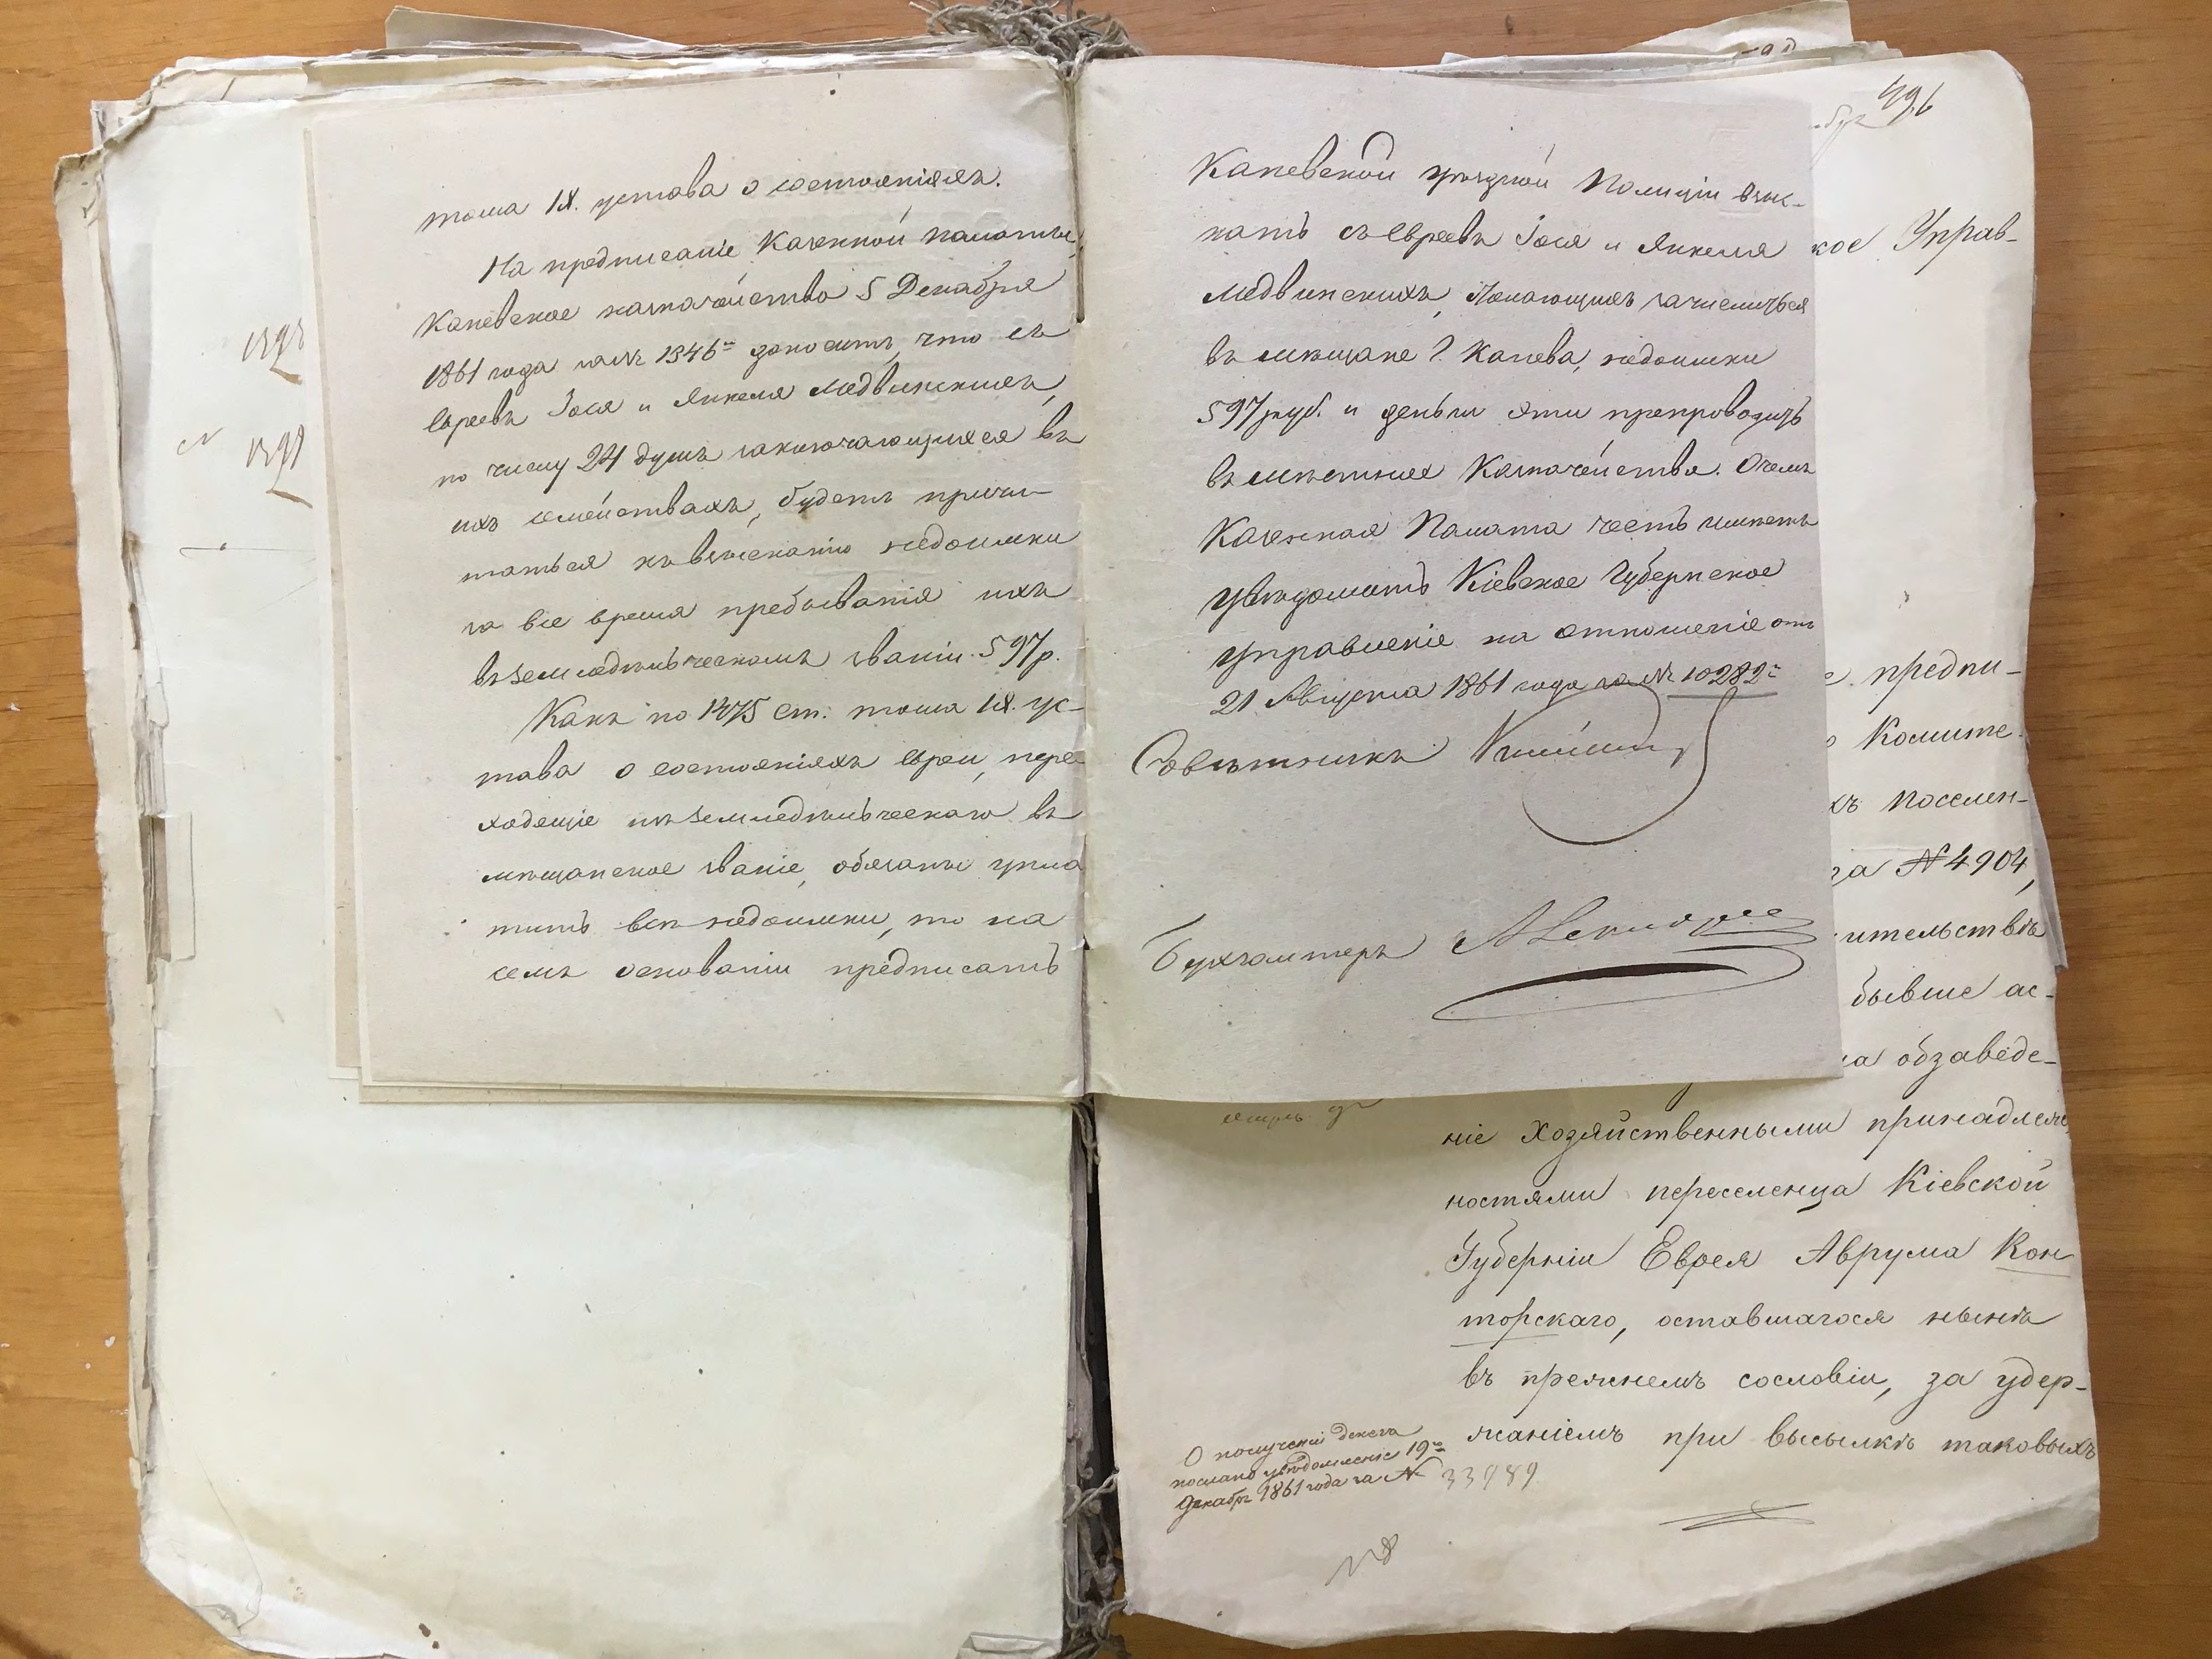 тома IX. устава о состояніяхъ.
На предписаніе Казенной Палаты,
Каневское казначейство 5 Декабря
1861 года за № 1346 доноситъ, что съ
евреевъ Іося и Янкеля Медвинскихъ,
по числу 24 душъ заключающихся въ
ихъ семействахъ, будетъ причи-
таться къ взысканію недоимки
за все время пребыванія ихъ
въ земледѣльческомъ званіи 597 р.
Какъ по 1475 ст. тома IX. ус-
тава о состояніяхъ евреи, пере-
ходящіе изъ земледѣльческаго въ
мѣщанское званіе, обязаны упла
тить всѣ недоимки, то на
семъ основаніи предписать
496
Каневской уѣздной Полиціи взыс-
кать съ Евреевъ Іося и Янкеля
Медвинскихъ, желающихъ зачислиться
въ мѣщане г. Канева, недоимки
597 руб. и деньги эти препроводить
въ мѣстное Казначейство. О чемъ
Казенная Палата честь имѣетъ
увѣдомить Кіевское Губернское
управленіе на отношеніе отъ
21 Августа 1861 года за № 10282
Совѣтникъ
Бухгалтеръ
кое Управ-
предпи-
Комите-
хъ поселен-
за № 4904,
ительствѣ
бывше ас-
на обзаведе-
ніе хозяйственными принадлеж
ностями переселенца Кіевской
Губерніи Еврея Аврума Кон
торскаго, оставшагося нынѣ
въ прежнемъ сословіи, за удер-
жаніемъ при высылкѣ таковыхъ
О полученіи денегъ
послано увѣдомленіе 19
Декабр 1861 года за №